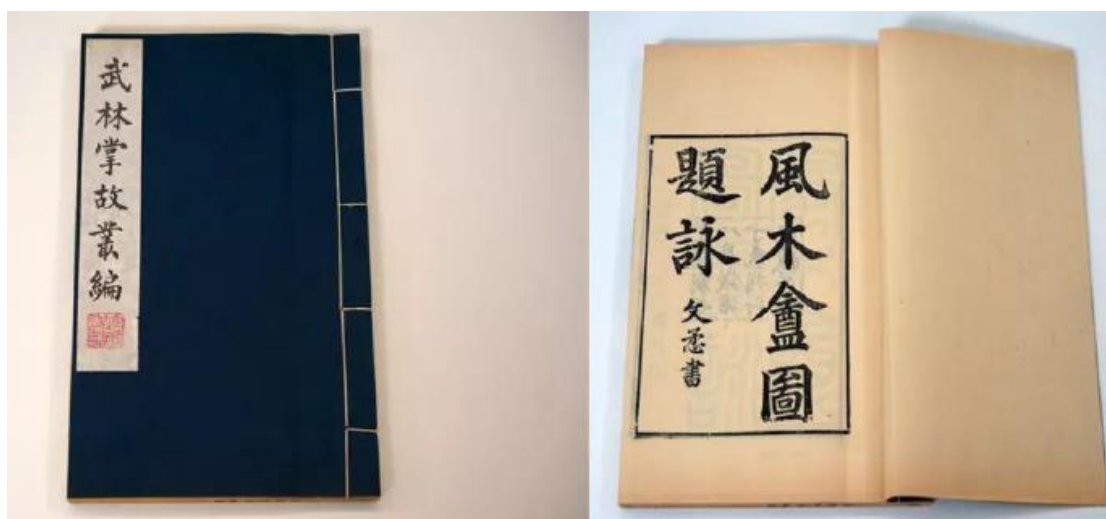 武林掌故叢編
風木盦圖
題詠
文䒱書